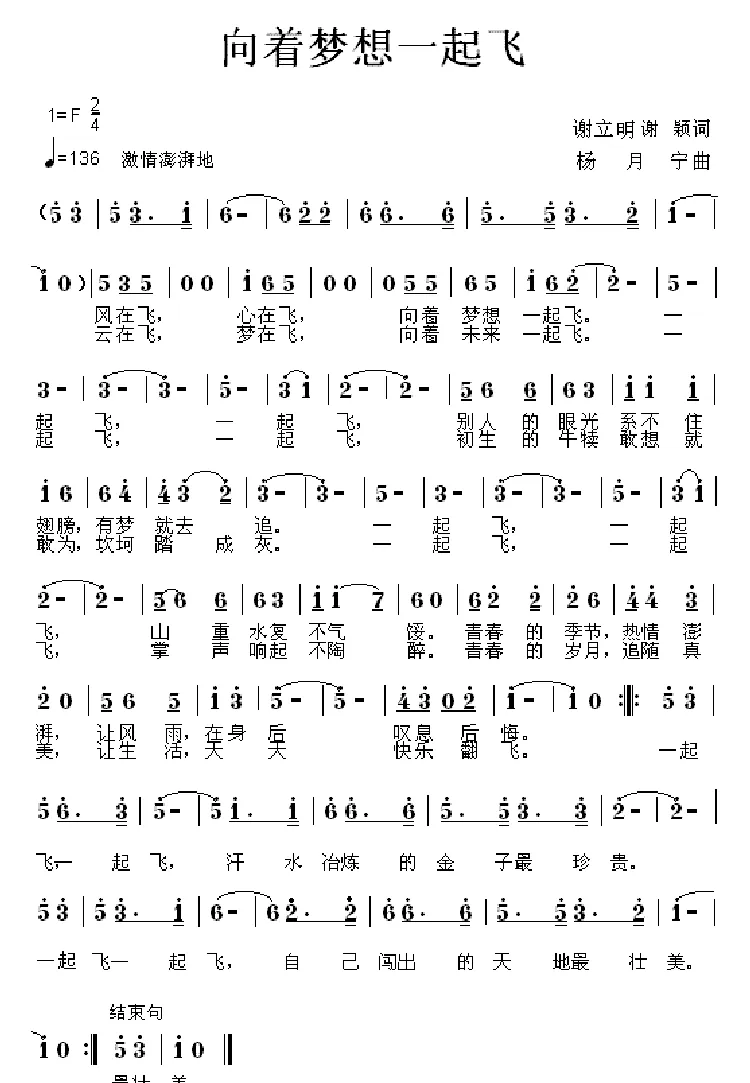 向着梦想一起飞
1=F 2/4
谢立明 谢 颖词
♩=136 激情澎湃地
杨 月 宁曲
(5 3 | 5 3. 1 | 6 - | 6 2 2 | 6 6. 6 | 5. 5 3. 2 | 1 - |
1 0 ) | 5 3 5 | 0 0 | 1 6 5 | 0 0 | 0 5 5 | 6 5 | 1 6 2 | 2 - | 5 - |
风在飞, 心在飞, 向着 梦想 一起飞。 一
云在飞, 梦在飞, 向着 未来 一起飞。 一
3 - | 3 - | 3 - | 5 - | 3 1 | 2 - | 2 - | 5 6 6 | 6 3 | 1 1 1 |
起 飞, 一 起 飞, 别人 的 眼光 系不 住
起 飞, 一 起 飞, 初生 的 牛犊 敢想 就
1 6 | 6 4 | 4 3 2 | 3 - | 3 - | 5 - | 3 - | 3 - | 3 - | 5 - | 3 1 |
翅膀, 有梦 就去 追。 一 起 飞, 一 起
敢为, 坎坷 踏 成 灰。 一 起 飞, 一 起
2 - | 2 - | 5 6 6 | 6 3 | 1 1 7 | 6 0 | 6 2 2 | 2 6 | 4 4 3 |
飞, 山 重 水复 不气 馁。 青春 的 季节, 热情 澎
飞, 掌 声 响起 不陶 醉。 青春 的 岁月, 追随 真
2 0 | 5 6 5 | 1 3 | 5 - | 5 - | 4 3 0 2 | 1 - | 1 0 :||: 5 3 |
湃, 让风 雨, 在身 后 叹息 后 悔。
美, 让生 活, 天 天 快乐 翻 飞。 一起
5 6. 3 | 5 - | 5 1. 1 | 6 6. 6 | 5. 5 3. 2 | 2 - | 2 - |
飞一 起 飞, 汗 水 冶炼 的 金 子最 珍 贵。
5 3 | 5 3. 1 | 6 - | 6 2. 2 | 6 6. 6 | 5. 5 3. 2 | 1 - |
一起 飞一 起 飞, 自 己 闯出 的 天 地最 壮 美。
结束句
1 0 :|| 5 3 | 1 0 ||
最壮 美